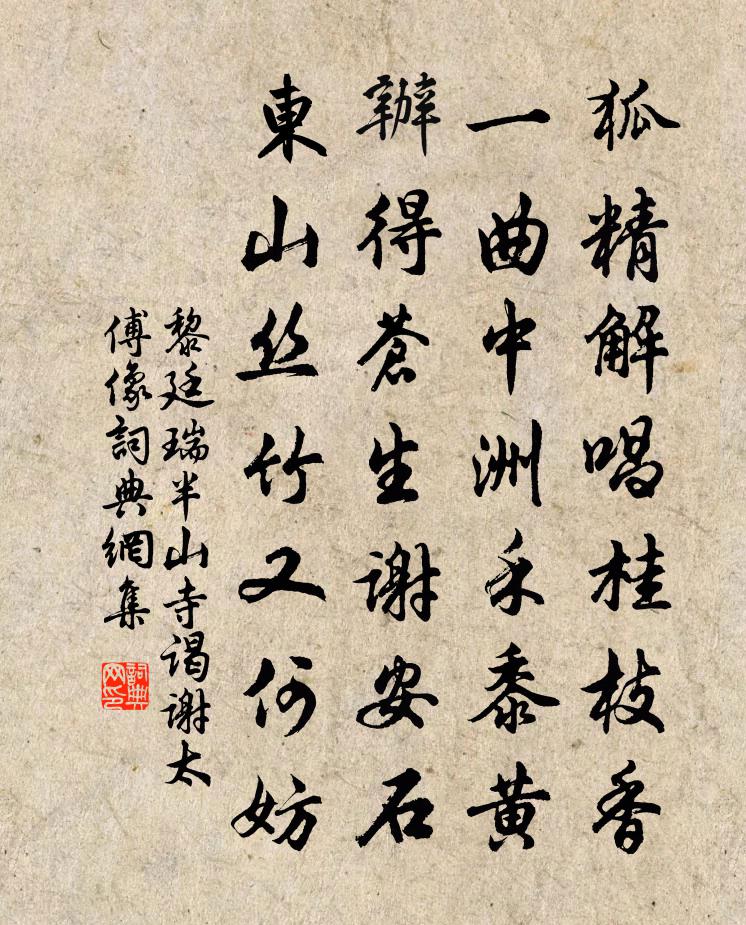 狐精解唱桂枝香
一曲中洲禾黍黃
辦得蒼生謝安石
東山丝竹又何妨
黎廷瑞半山寺謁謝太
傅像詞典網集
詞典
网印